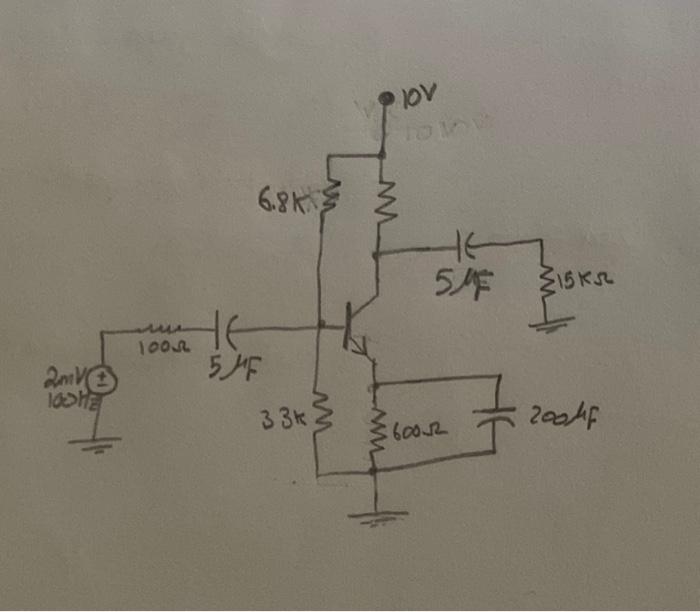 10V
6.8K
5µF
15KΩ
100Ω
5µF
2mV
100Hz
3.3K
600Ω
200µF